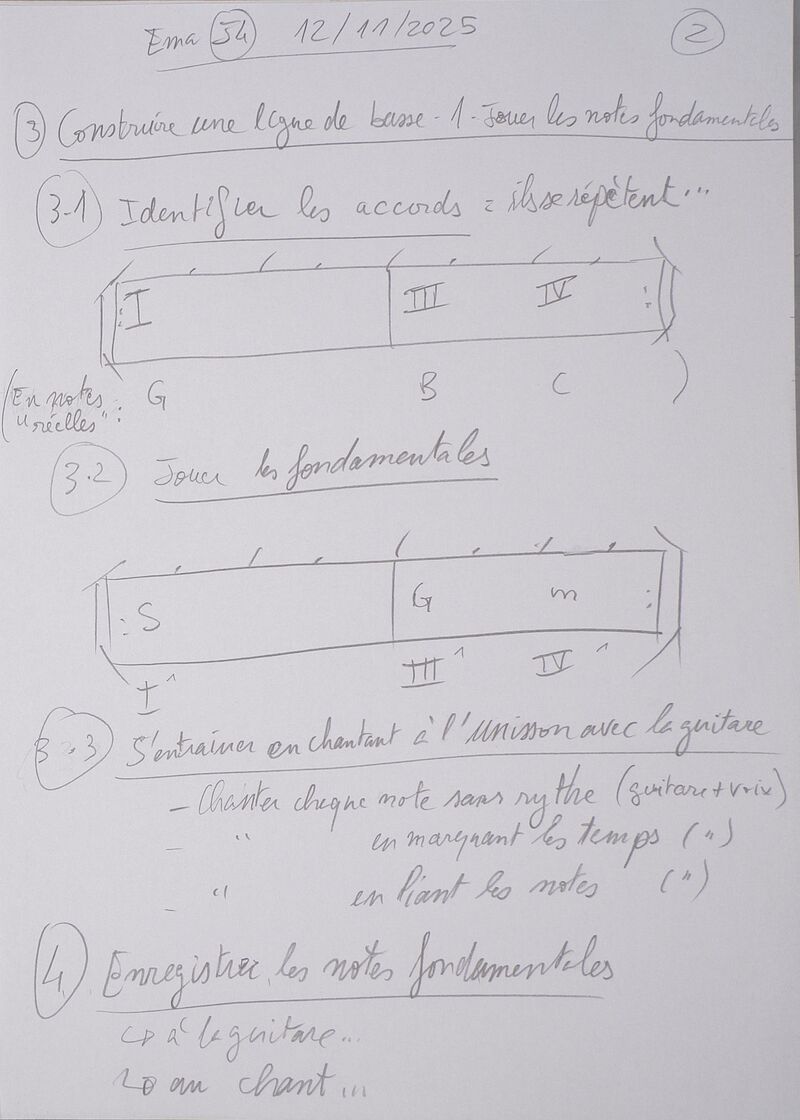 Ema 54 12/11/2025 2
3 Construire une ligne de basse - 1 - Jouer les notes fondamentales
3-1 Identifier les accords : ils se répètent...
I III IV
(En notes "réelles" : G B C )
3.2 Jouer les fondamentales
: S G m :
I^ III^ IV^
3.3 S'entraîner en chantant à l'unisson avec la guitare
- Chanter chaque note sans rythe (guitare + voix)
- " en marquant les temps (")
- " en liant les notes (")
4 Enregistrer les notes fondamentales
↳ à la guitare...
↳ au chant...